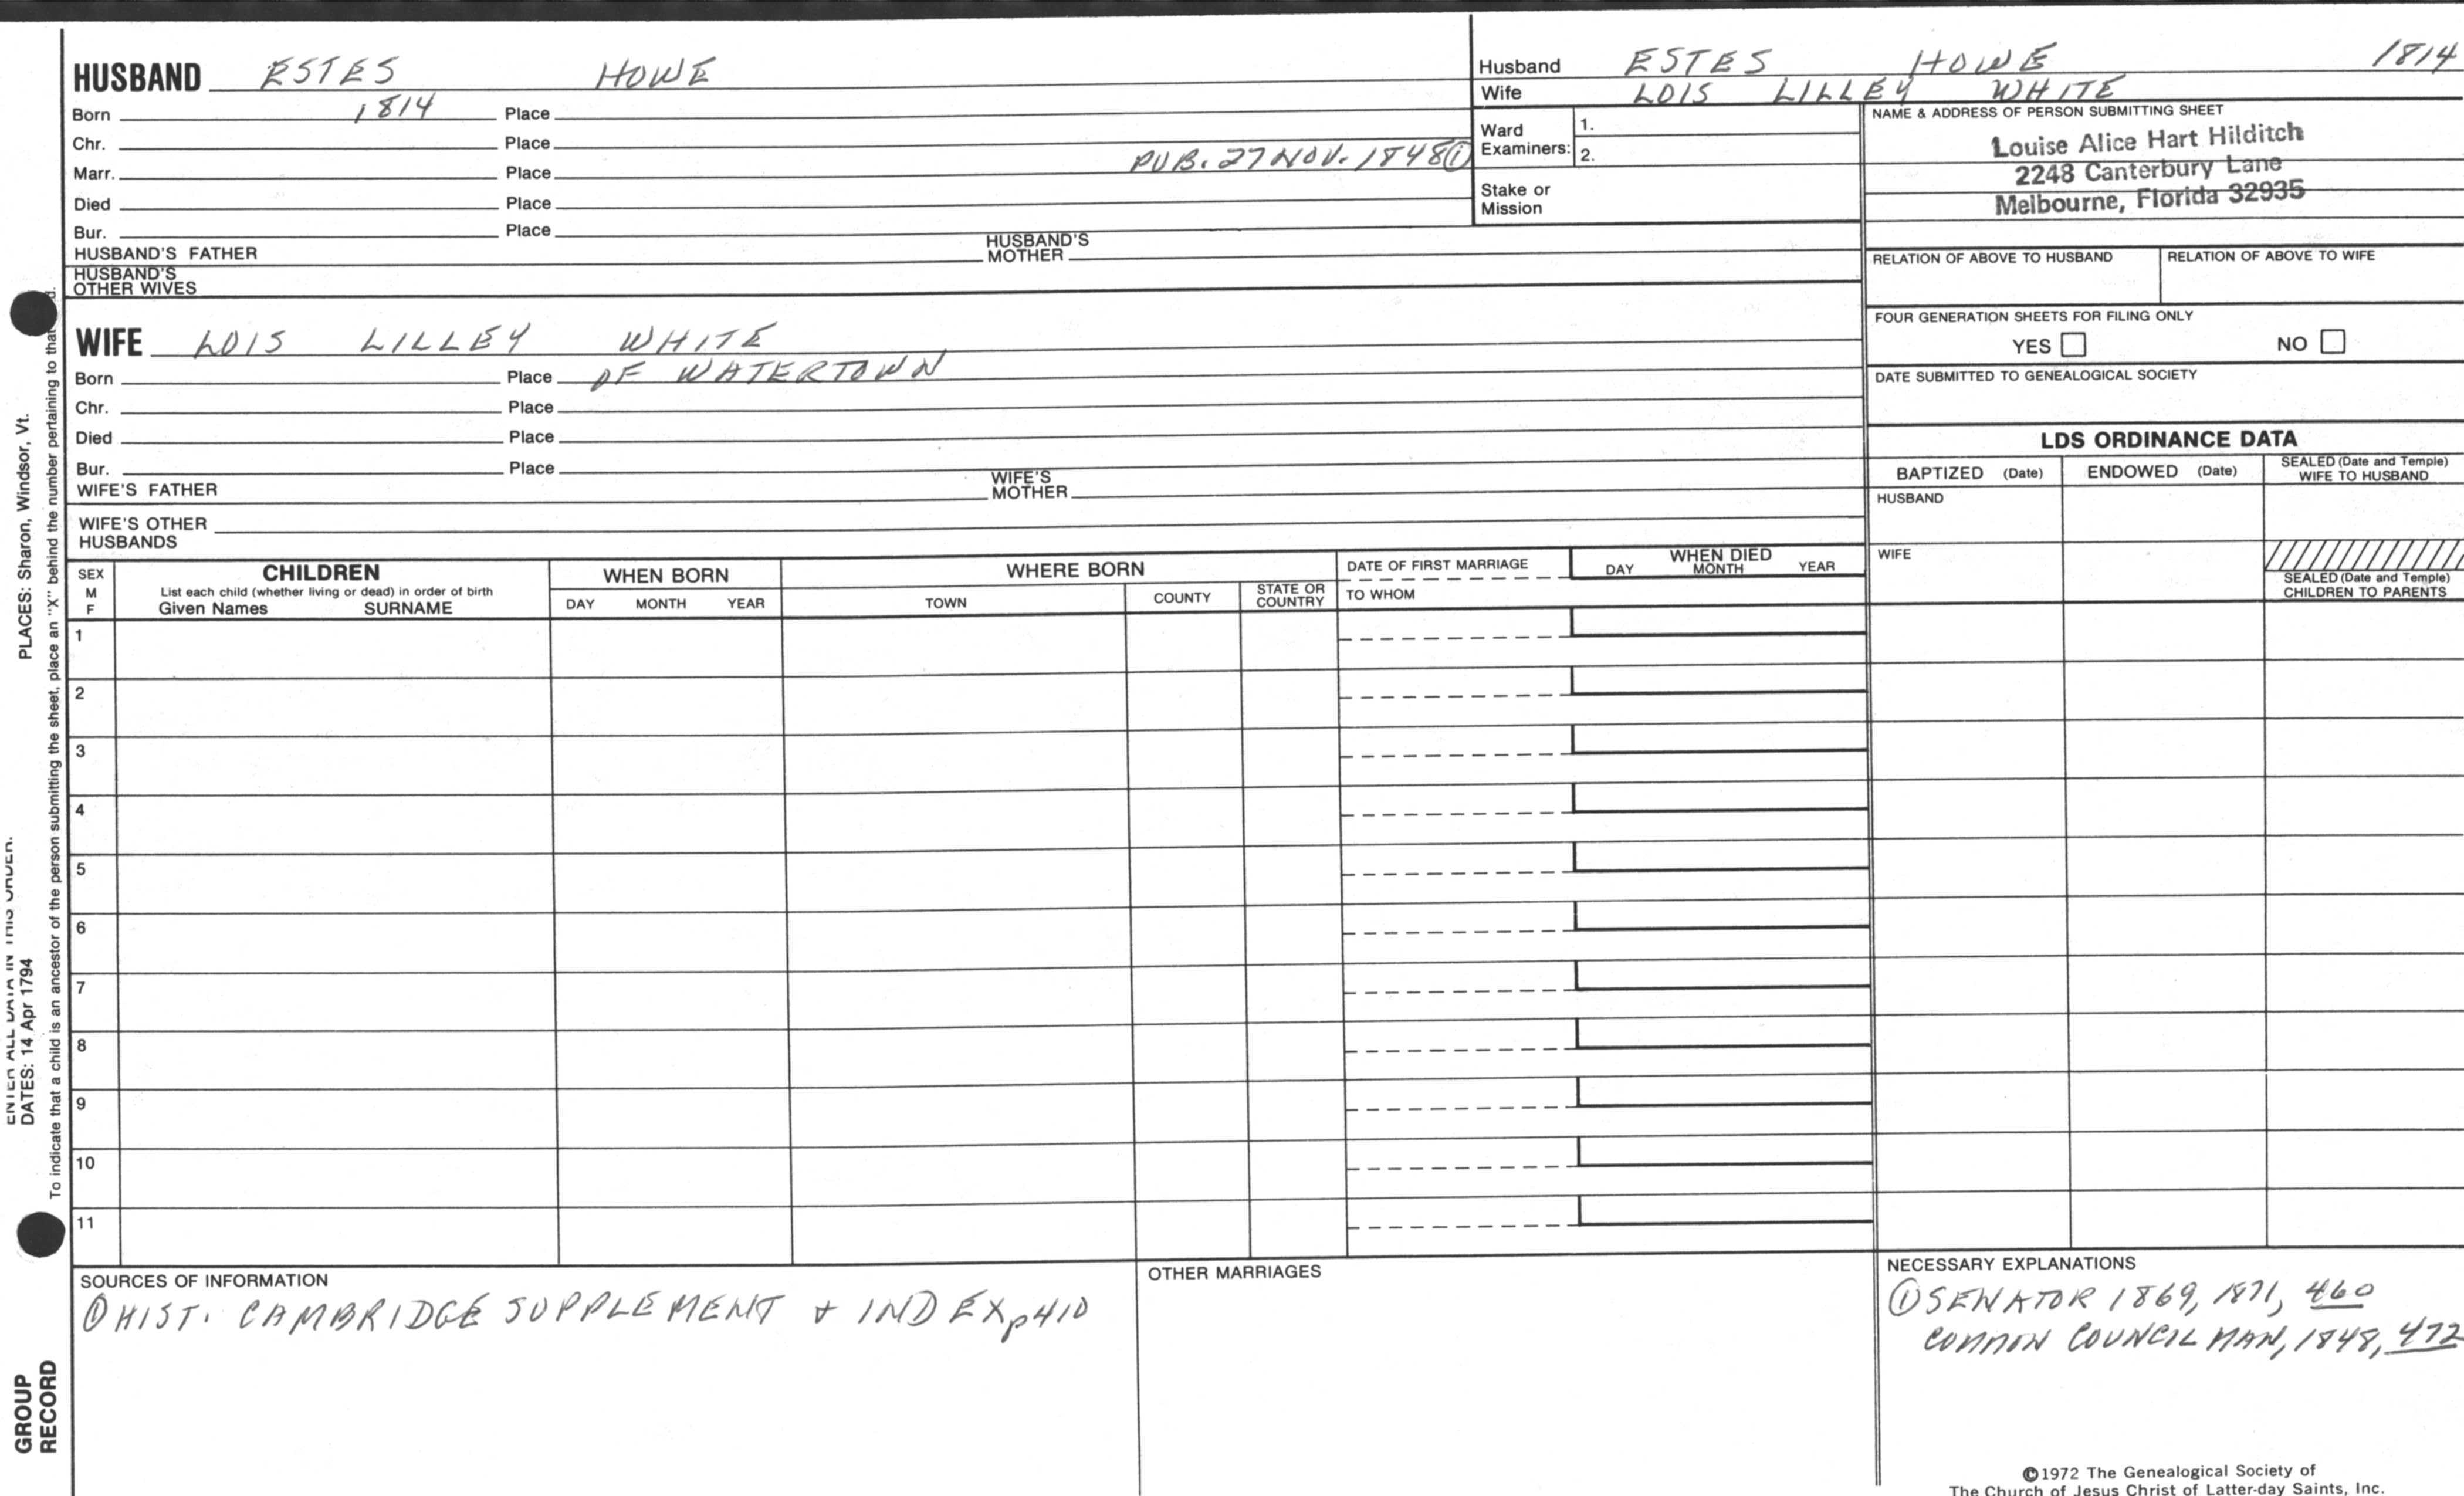 HUSBAND ESTES HOWE
Born 1814 Place
Chr. Place
Marr. Place PUB. 27 NOV. 1848 ①
Died Place
Bur. Place
HUSBAND'S FATHER HUSBAND'S MOTHER
HUSBAND'S OTHER WIVES
WIFE LOIS LILLEY WHITE
Born Place OF WATERTOWN
Chr. Place
Died Place
Bur. Place
WIFE'S FATHER WIFE'S MOTHER
WIFE'S OTHER HUSBANDS
Husband ESTES HOWE 1814
Wife LOIS LILLEY WHITE
Ward Examiners: 1.
2.
Stake or Mission
NAME & ADDRESS OF PERSON SUBMITTING SHEET
Louise Alice Hart Hilditch
2248 Canterbury Lane
Melbourne, Florida 32935
RELATION OF ABOVE TO HUSBAND RELATION OF ABOVE TO WIFE
FOUR GENERATION SHEETS FOR FILING ONLY
YES NO
DATE SUBMITTED TO GENEALOGICAL SOCIETY
LDS ORDINANCE DATA
BAPTIZED (Date) ENDOWED (Date) SEALED (Date and Temple) WIFE TO HUSBAND
HUSBAND
WIFE
SEALED (Date and Temple)
CHILDREN TO PARENTS
SEX M F
CHILDREN
List each child (whether living or dead) in order of birth
Given Names SURNAME
WHEN BORN
DAY MONTH YEAR
WHERE BORN
TOWN COUNTY STATE OR COUNTRY
DATE OF FIRST MARRIAGE
TO WHOM
WHEN DIED
DAY MONTH YEAR
1
2
3
4
5
6
7
8
9
10
11
SOURCES OF INFORMATION
① HIST. CAMBRIDGE SUPPLEMENT & INDEX p410
OTHER MARRIAGES
NECESSARY EXPLANATIONS
① SENATOR 1869, 1871, 460
COMMON COUNCIL MAN, 1848, 472
©1972 The Genealogical Society of
The Church of Jesus Christ of Latter-day Saints, Inc.
GROUP
RECORD
ENTER ALL DATA IN THIS ORDER.
DATES: 14 Apr 1794 PLACES: Sharon, Windsor, Vt.
To indicate that a child is an ancestor of the person submitting the sheet, place an "X" behind the number pertaining to that